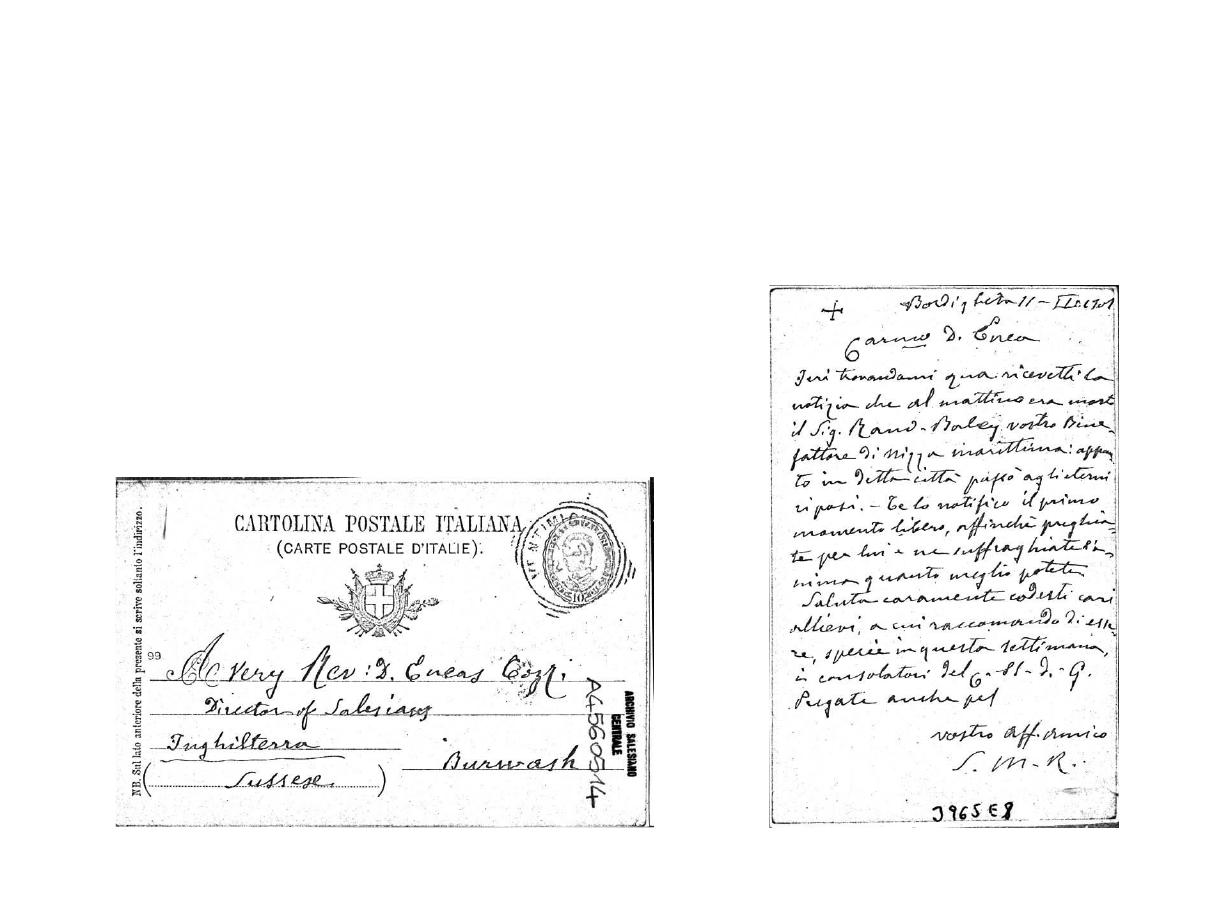 CARTOLINA POSTALE ITALIANA
(CARTE POSTALE D'ITALIE).
NB. Sul lato anteriore della presente si scrive soltanto l'indirizzo.
VENTIMIG
10
99
A Very Rev: D. Eneas Cozzi
Director of Salesians
Inghilterra
Burwash
(Sussese.)
ARCHIVIO SALESIANO
CENTRALE
A4560514
+ Bordighera 11 -
Carmo D. Enea
Ieri trovandomi qua ricevetti la
notizia che al mattino era morto
il Sig. Rand-Baley vostro Bene-
fattore di Nizza marittima: appun
to in detta città passò agli eterni
riposi. - Te lo notifico il primo
momento libero, affinchè preghia-
te per lui e ne suffraghiate l'a-
nima quanto meglio potete
Saluta caramente codesti cari
allievi, a cui raccomando di esse-
re, specie in questa settimana,
i consolatori del C. SS. d. G.
Pregate anche pel
vostro aff. amico
S. M. R.
3965 E8